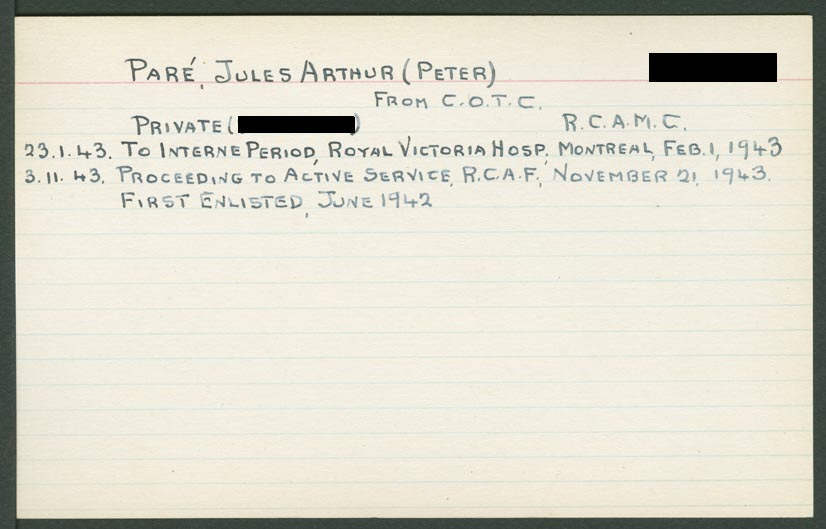 PARÉ, JULES ARTHUR (PETER)
FROM C.O.T.C.
PRIVATE ( ) R.C.A.M.C.
23.1.43. TO INTERNE PERIOD, ROYAL VICTORIA HOSP, MONTREAL, FEB. 1, 1943
3.11.43. PROCEEDING TO ACTIVE SERVICE, R.C.A.F., NOVEMBER 21, 1943.
FIRST ENLISTED, JUNE 1942